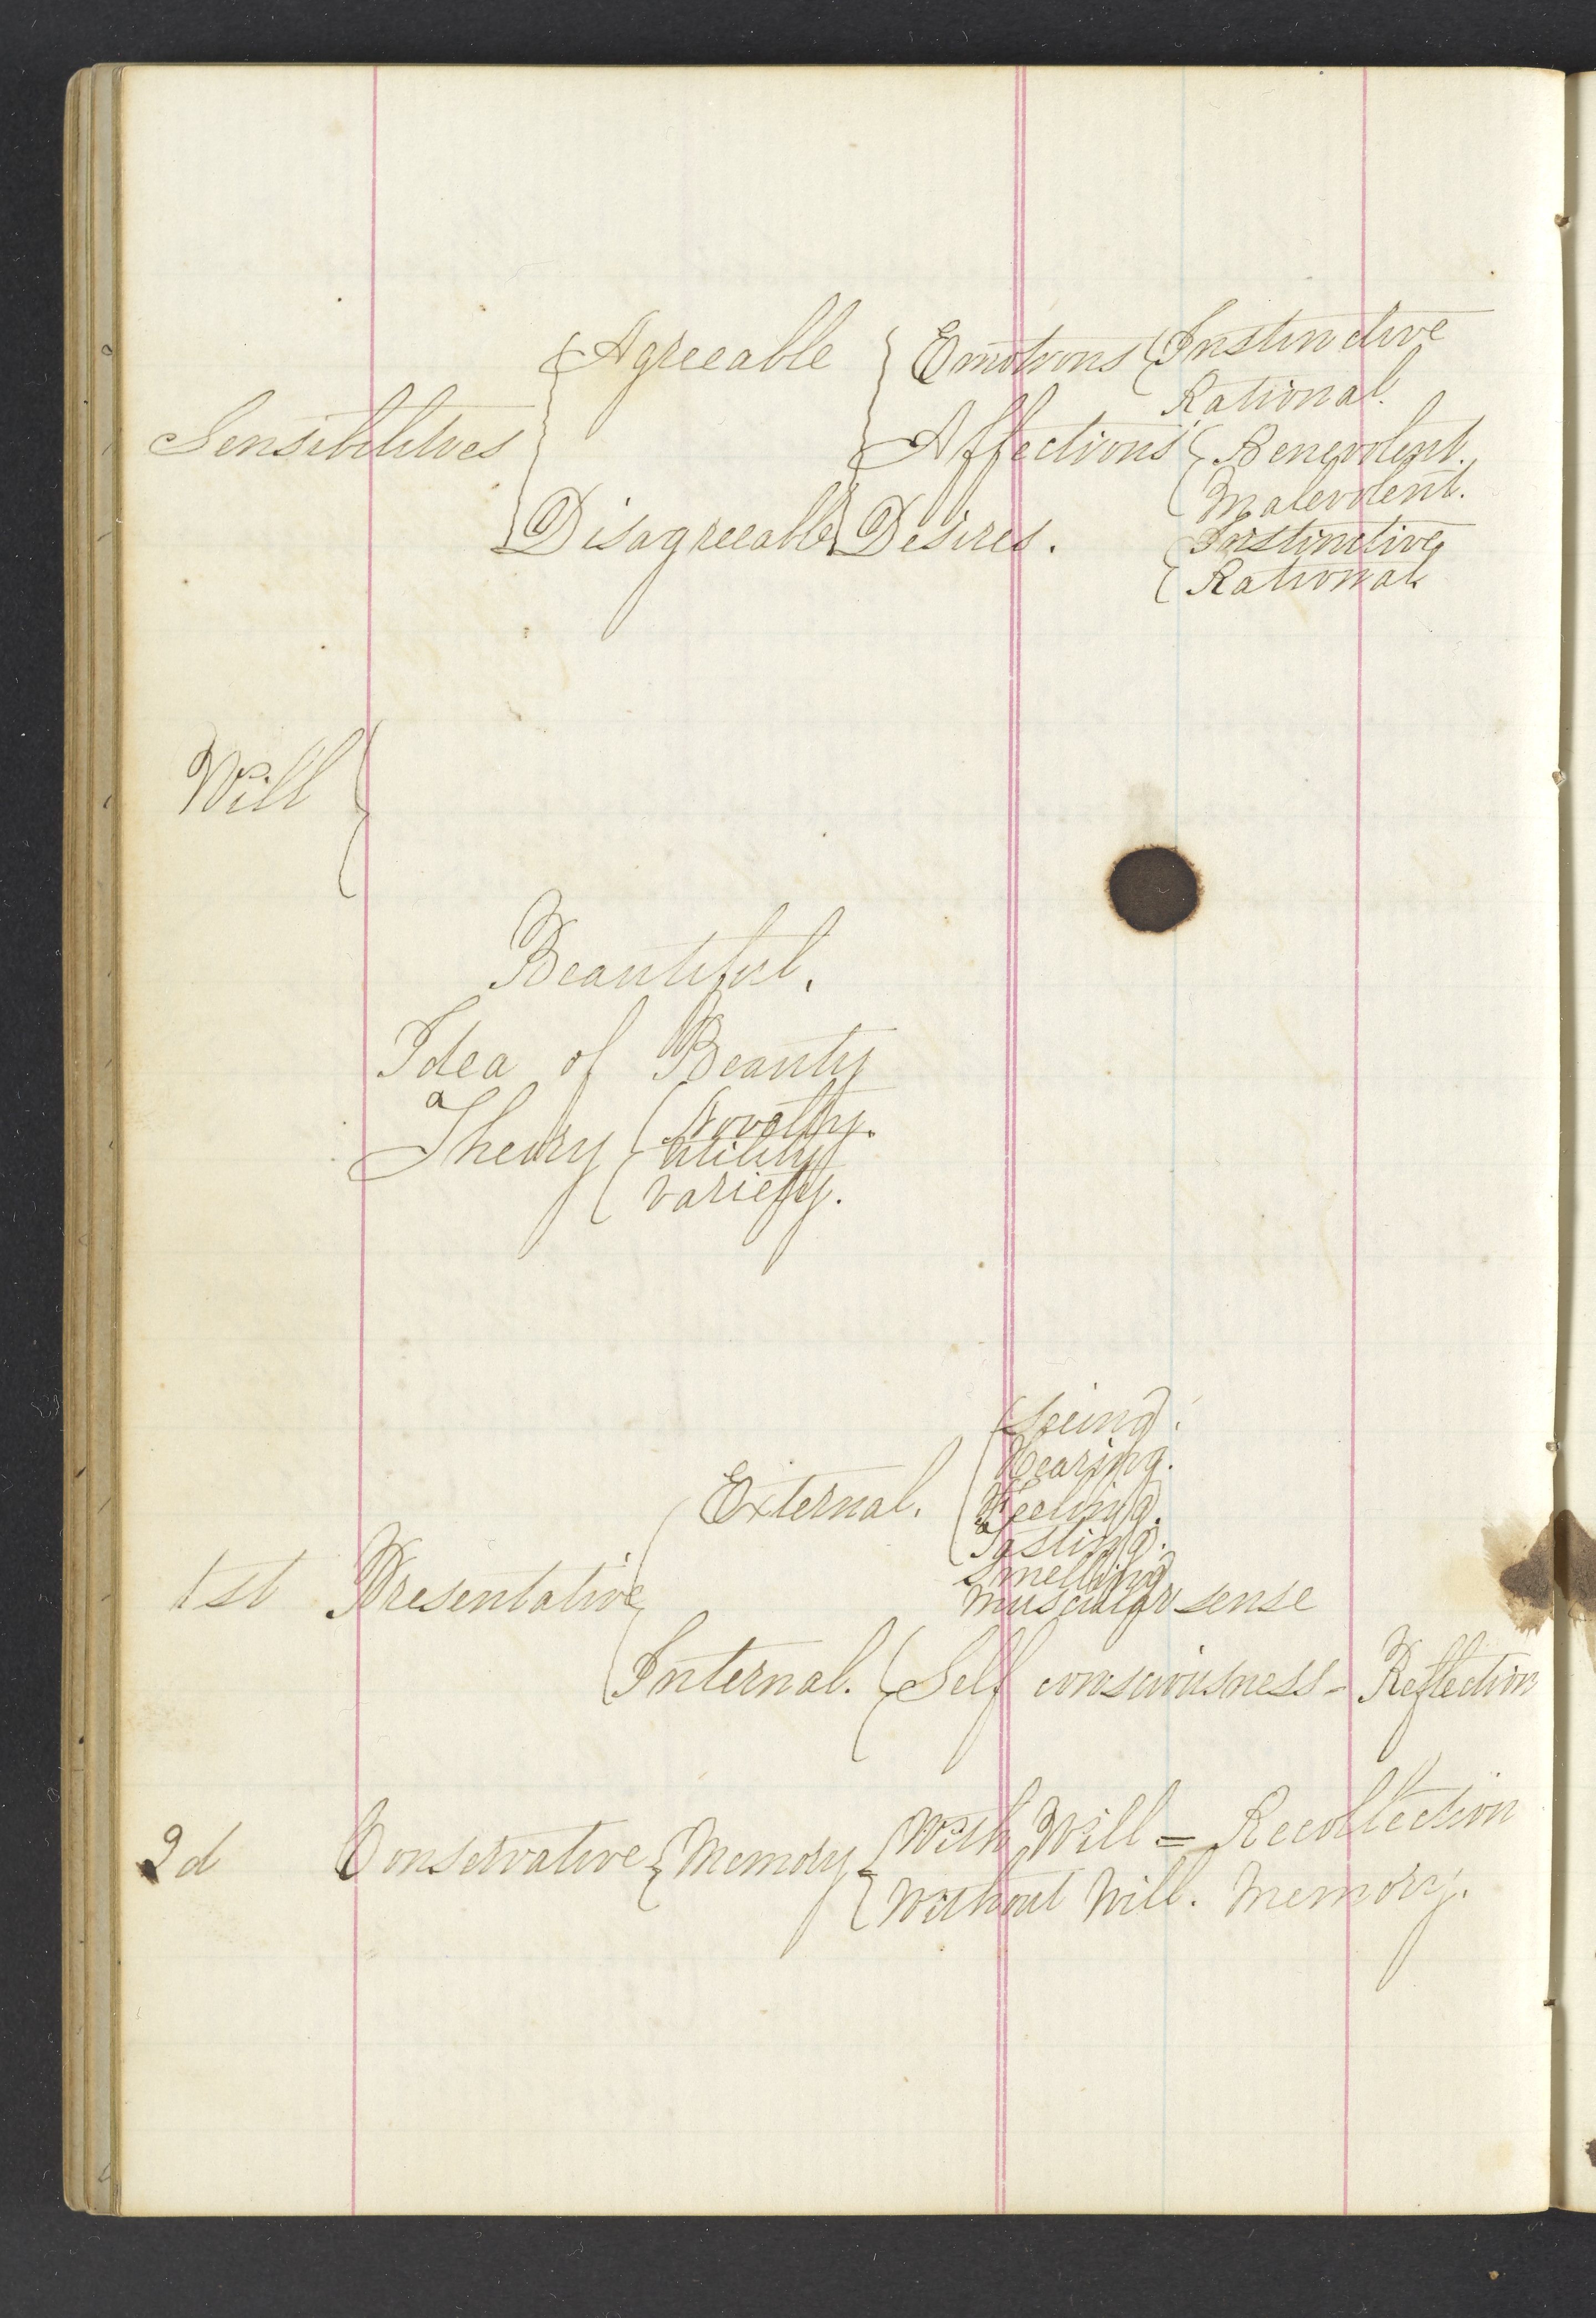 Agreeable { Emotions { Instinctive
Rational.
Sensibilities { Affections { Benevolent.
Malevolent.
Disagreeable { Desires. { Instinctive
Rational.
Will {
Beautiful.
Idea of Beauty
a
Theory { Novelty.
Utility
variety.
Seeing.
Hearing.
External. { Feeling.
Tasting.
Smelling
1st Presentative { muscular sense
Internal. { Self consciousness = Reflection
2d Conservative { Memory { With Will = Recollection
Without Will. Memory.